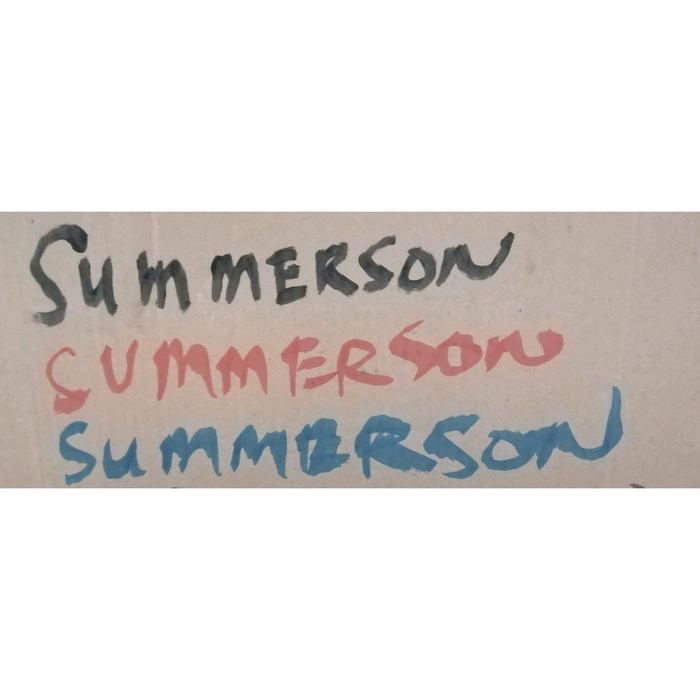 SUMMERSON
SUMMERSON
SUMMERSON